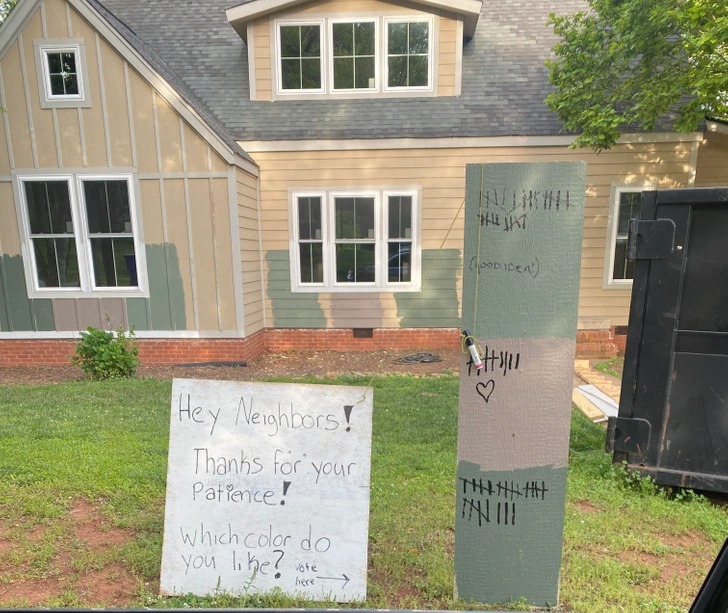 Hey Neighbors!
Thanks for your
Patience!
which color do
you like?
vote
here →
(GOOD IDEA!)
♡